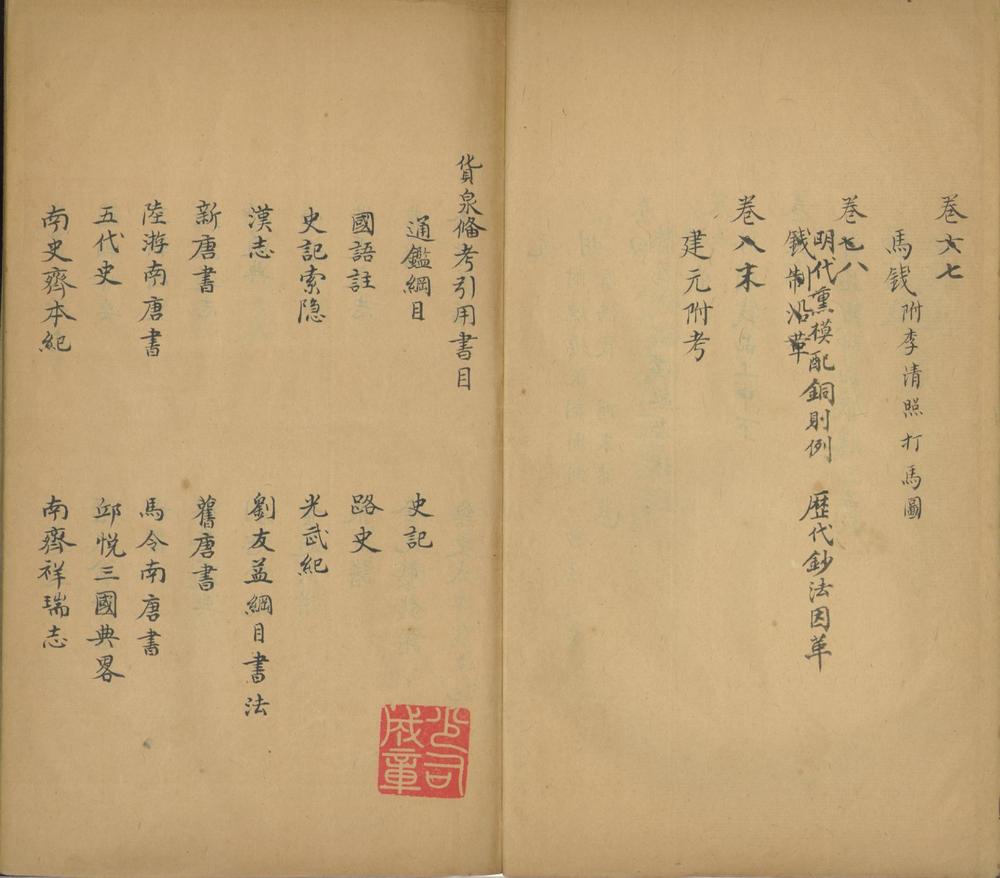 卷六七
馬錢 附李清照打馬圖
卷七八
明代熏模配銅則例 歷代鈔法因革
錢制沿革
卷八末
建元附考
貨泉俻考引用書目
通鑑綱目 史記
國語註 路史
史記索隐 光武紀
漢志 劉友益綱目書法
新唐書 舊唐書
陸游南唐書 馬令南唐書
五代史 邱悅三國典畧
南史齊本紀 南齊祥瑞志